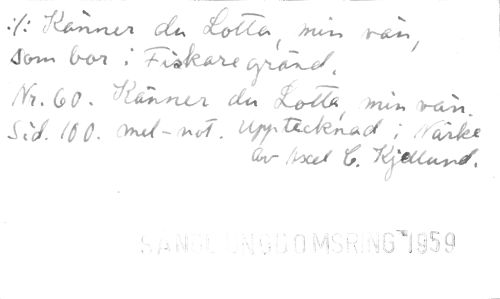 :/: Känner du Lotta, min vän,
som bor i Fiskaregränd.
Nr. 60. Känner du Lotta, min vän.
Sid. 100. mel-not. Upptecknad i Närke
av Axel C. Kjellund.
1959